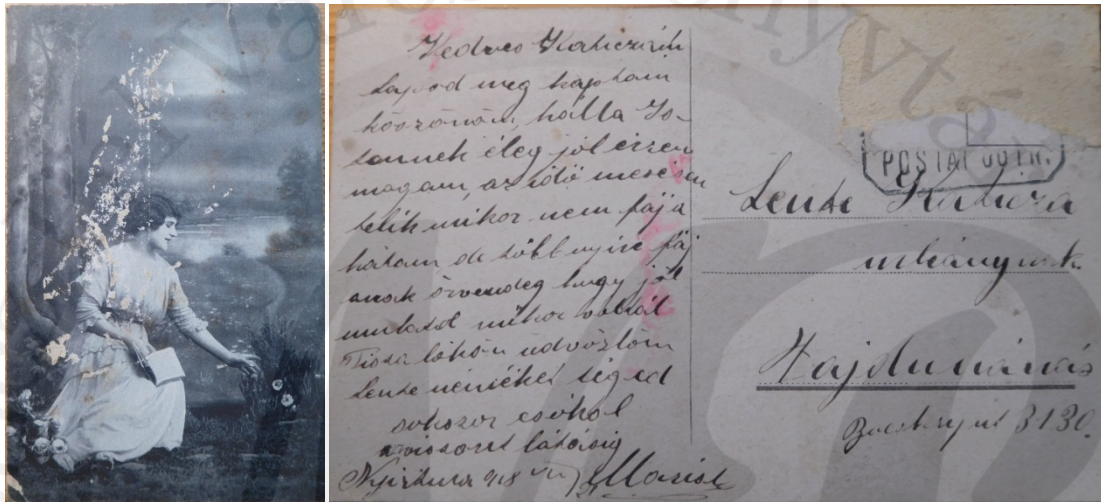 Kedves Katiczám
Lapod meg kaptam
köszönöm, hálla Is-
tennek éleg jól érzem
magam, az idő messen
telik mikor nem fája
hátam de többnyire fáj
anak örvendeg hogy jól
mulatd mikor voltál
Tisza lökön üdvözlöm
Lente néniéket téged
sokszor csókol
viszont látásig
918 VII
Mariska
POSTAI
Lente Katicza
urleánynak
Hajdunánás
3130.